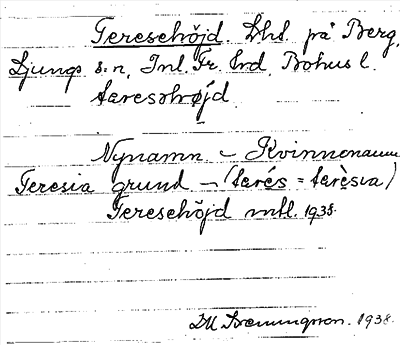 Teresehöjd. Lht. på Berg,
Ljungs s:n, Inl. Fr. hrd, Bohusl.
tareshøjd
Nynamn – Kvinnonamn
Teresia grund – (tarés = tarèsia)
Teresehöjd mtl. 1938.
1938.